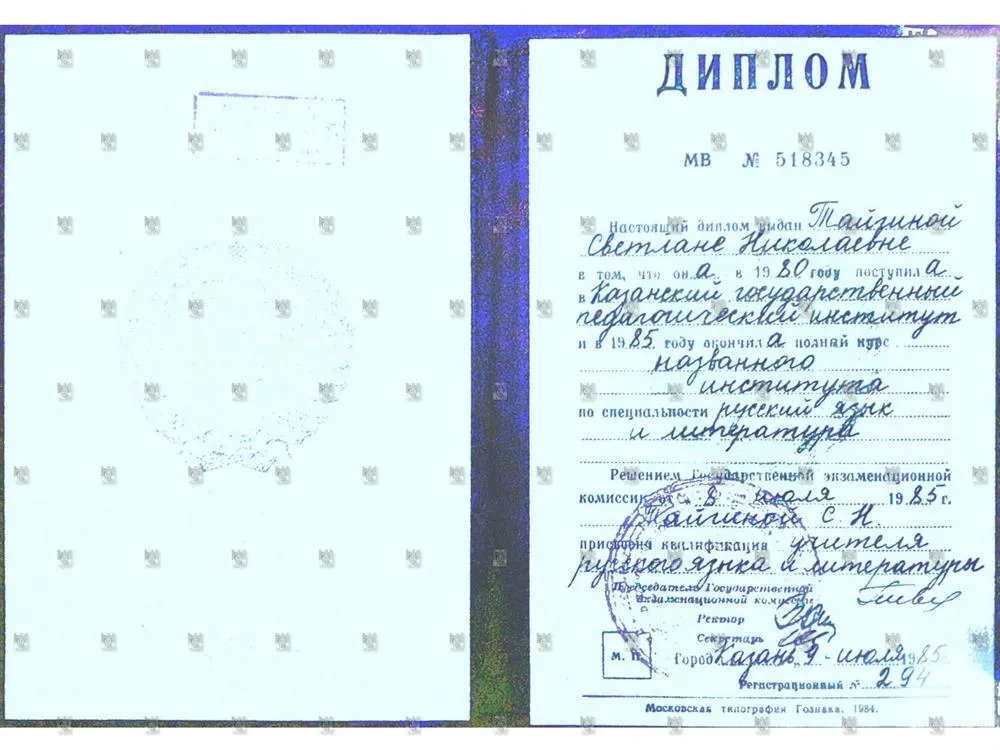 ДИПЛОМ
МВ № 518345
Настоящий диплом выдан Тайгиной
Светлане Николаевне
в том, что она в 1980 году поступила
в Казанский государственный
педагогический институт
и в 1985 году окончила полный курс
названного
института
по специальности русский язык
и литература
Решением Государственной экзаменационной
комиссии от 8 июля 1985 г.
Тайгиной С. Н.
присвоена квалификация учителя
русского языка и литературы
Председатель Государственной
экзаменационной комиссии
Ректор
Секретарь
М. П.
Город Казань, 9 июля 1985
Регистрационный № 294
Московская типография Гознака. 1984.